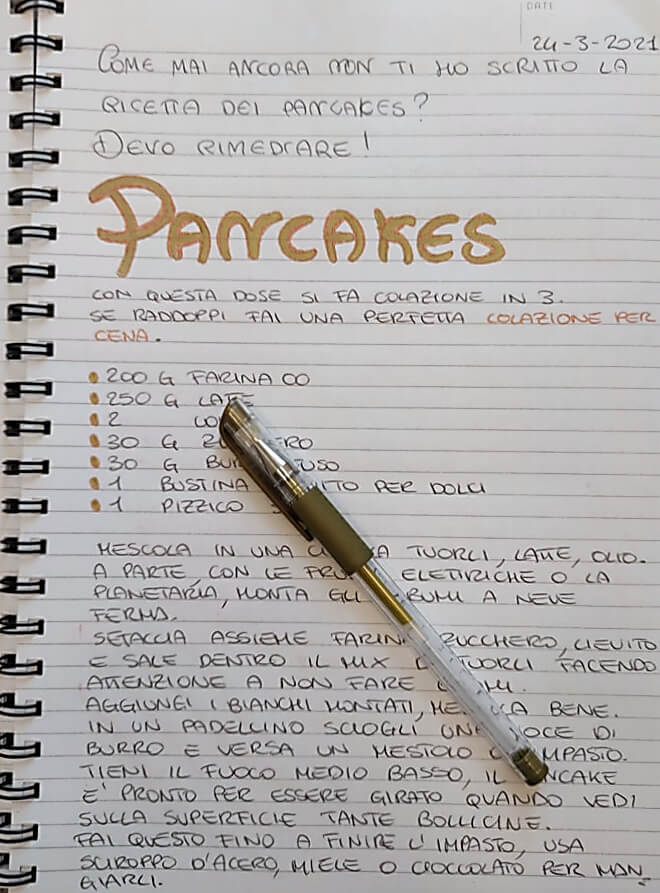 DATE
24-3-2021
COME MAI ANCORA NON TI HO SCRITTO LA
RICETTA DEI PANCAKES?
DEVO RIMEDIARE!
PANCAKES
CON QUESTA DOSE SI FA COLAZIONE IN 3.
SE RADDOPPI FAI UNA PERFETTA COLAZIONE PER
CENA.
• 200 G FARINA 00
• 250 G LATTE
• 2
• 30 G
• 30 G
• 1 BUSTINA PER DOLCI
• 1 PIZZICO
MESCOLA IN UNA TUORLI, LATTE, OLIO.
A PARTE, CON LE ELETTRICHE O LA
PLANETARIA, MONTA GLI A NEVE
FERMA.
SETACCIA ASSIEME FARINA ZUCCHERO, LIEVITO
E SALE DENTRO IL MIX TUORLI FACENDO
ATTENZIONE A NON FARE
AGGIUNGI I BIANCHI MONTATI, BENE.
IN UN PADELLINO SCIOGLI UNA NOCE DI
BURRO E VERSA UN MESTOLO IMPASTO.
TIENI IL FUOCO MEDIO BASSO, IL
E' PRONTO PER ESSERE GIRATO QUANDO VEDI
SULLA SUPERFICIE TANTE BOLLICINE.
FAI QUESTO FINO A FINIRE L'IMPASTO, USA
SCIROPPO D'ACERO, MIELE O CIOCCOLATO PER MAN-
GIARLI.